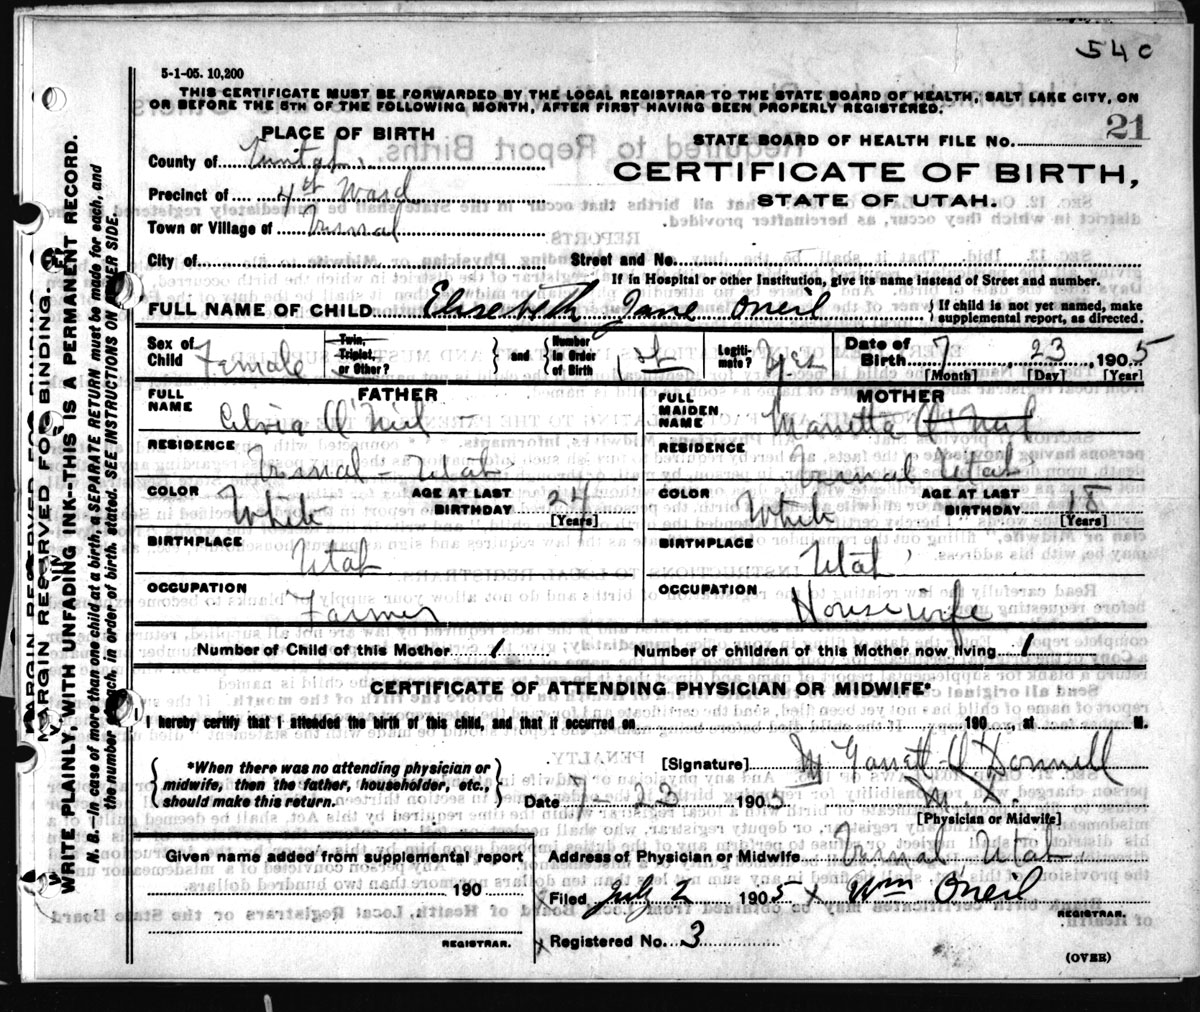 54c
5-1-05. 10,200
THIS CERTIFICATE MUST BE FORWARDED BY THE LOCAL REGISTRAR TO THE STATE BOARD OF HEALTH, SALT LAKE CITY, ON
OR BEFORE THE 5TH OF THE FOLLOWING MONTH, AFTER FIRST HAVING BEEN PROPERLY REGISTERED.
PLACE OF BIRTH
STATE BOARD OF HEALTH FILE NO. 21
County of
CERTIFICATE OF BIRTH,
Precinct of 4th Ward
STATE OF UTAH.
Town or Village of Vernal
City of Street and No.
If in Hospital or other Institution, give its name instead of Street and number.
FULL NAME OF CHILD Elisebeth Jane Oneil { If child is not yet named, make supplemental report, as directed.
Sex of Child Female Twin, Triplet, or Other? } and { Number in Order of Birth 1st Legiti- mate? Yes Date of Birth 7 23 1905
[Month] [Day] [Year]
FATHER MOTHER
FULL NAME O'Niel FULL MAIDEN NAME Marietta
RESIDENCE Vernal - Utah RESIDENCE Vernal Utah
COLOR White AGE AT LAST BIRTHDAY 24 [Years] COLOR White AGE AT LAST BIRTHDAY 18 [Years]
BIRTHPLACE Utah BIRTHPLACE Utah
OCCUPATION Farmer OCCUPATION Housewife
Number of Child of this Mother 1 Number of children of this Mother now living 1
CERTIFICATE OF ATTENDING PHYSICIAN OR MIDWIFE*
I hereby certify that I attended the birth of this child, and that it occurred on 190 at M.
*When there was no attending physician or midwife, then the father, householder, etc., should make this return.
[Signature]
Date 7-23 1905 M D.
[Physician or Midwife]
Given name added from supplemental report Address of Physician or Midwife Vernal Utah
190 Filed July 2 1905 x Wm Oneil
REGISTRAR.
REGISTRAR. x Registered No. 3
(OVER)
MARGIN RESERVED FOR BINDING.
WRITE PLAINLY, WITH UNFADING INK--THIS IS A PERMANENT RECORD.
N. B.--In case of more than one child at a birth, a SEPARATE RETURN must be made for each, and
the number of each, in order of birth, stated. SEE INSTRUCTIONS ON OTHER SIDE.